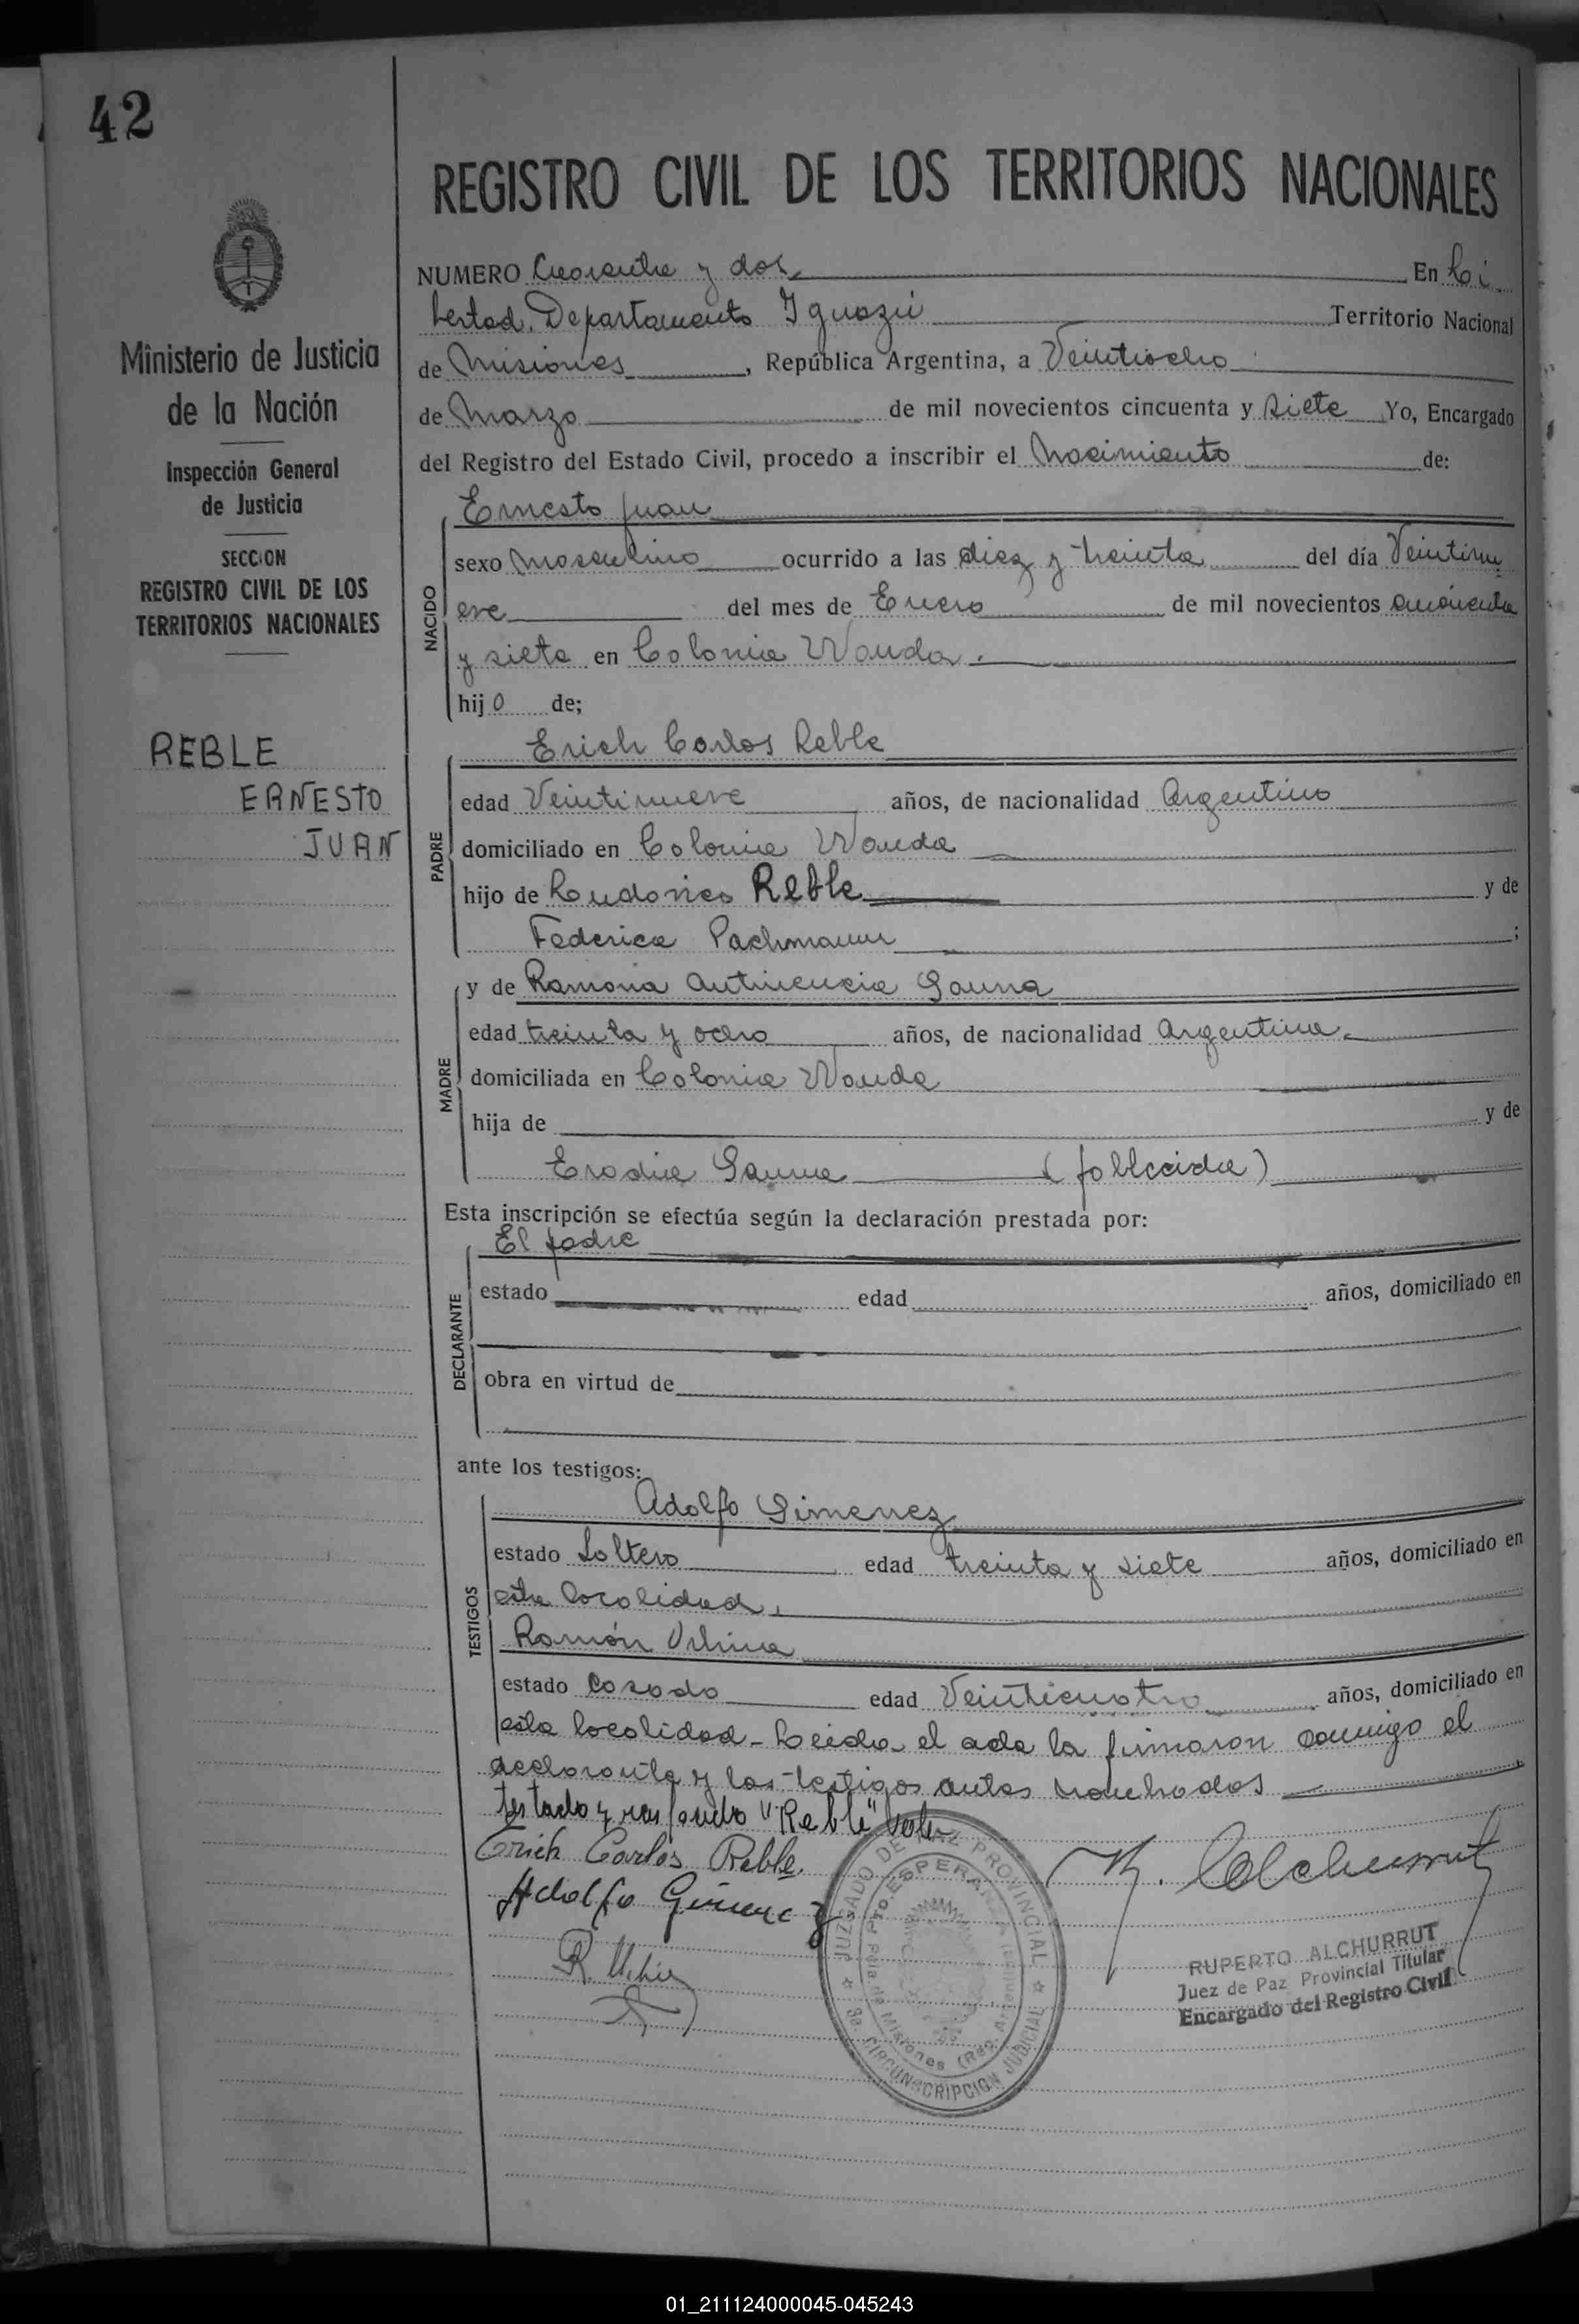 42
REGISTRO CIVIL DE LOS TERRITORIOS NACIONALES
Ministerio de Justicia
de la Nación
Inspección General
de Justicia
SECCION
REGISTRO CIVIL DE LOS
TERRITORIOS NACIONALES
REBLE
ERNESTO
JUAN
NUMERO Cuarenta y dos En Li
bertad. Departamento Iguazú Territorio Nacional
de Misiones, República Argentina, a Veintiocho
de Marzo de mil novecientos cincuenta y siete Yo, Encargado
del Registro del Estado Civil, procedo a inscribir el Nacimiento de:
NACIDO
Ernesto Juan
sexo Masculino ocurrido a las diez y treinta del día Veintinu
eve del mes de Enero de mil novecientos cincuenta
y siete en Colonia Wanda.
hijo de;
PADRE
Erich Carlos Reble
edad Veintinueve años, de nacionalidad Argentino
domiciliado en Colonia Wanda
hijo de Reble y de
Federica Pachmann;
MADRE
y de Ramona Gauna
edad treinta y ocho años, de nacionalidad Argentina.
domiciliada en Colonia Wanda
hija de y de
Gauna (fallecida)
Esta inscripción se efectúa según la declaración prestada por:
DECLARANTE
El padre
estado edad años, domiciliado en
obra en virtud de
ante los testigos:
TESTIGOS
Adolfo Gimenez
estado Soltero edad treinta y siete años, domiciliado en
esta localidad.
Ramón
estado Casado edad Veinticuatro años, domiciliado en
esta localidad - Leida el acta la firmaron conmigo el
declarante y los testigos antes nombrados
testado y "Reble" Vale
Erich Carlos Reble.
Adolfo Gimenez
JUZGADO DE PAZ PROVINCIAL
Pto. ESPERANZA
Pcia. de Misiones (Rep. Argentina)
3a. CIRCUNSCRIPCION JUDICIAL
R. Alchurrut
RUPERTO ALCHURRUT
Juez de Paz Provincial Titular
Encargado del Registro Civil
01_211124000045-045243